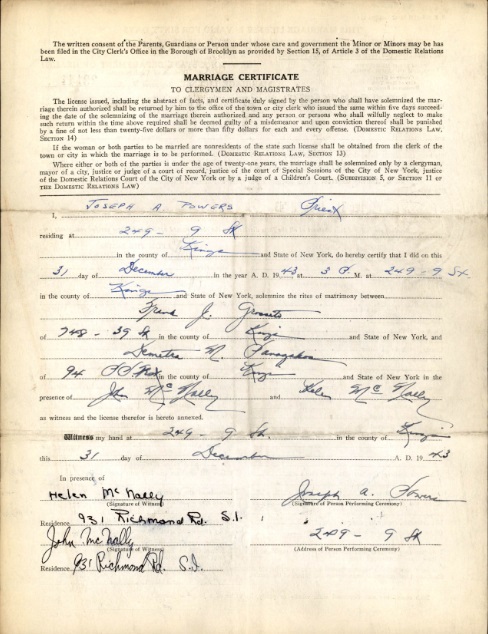 The written consent of the Parents, Guardians or Person under whose care and government the Minor or Minors may be has
been filed in the City Clerk's Office in the Borough of Brooklyn as provided by Section 15, of Article 3 of the Domestic Relations
Law.
MARRIAGE CERTIFICATE
TO CLERGYMEN AND MAGISTRATES
The license issued, including the abstract of facts, and certificate duly signed by the person who shall have solemnized the mar-
riage therein authorized shall be returned by him to the office of the town or city clerk who issued the same within five days succeed-
ing the date of the solemnizing of the marriage therein authorized and any person or persons who shall wilfully neglect to make
such return within the time above required shall be deemed guilty of a misdemeanor and upon conviction thereof shall be punished
by a fine of not less than twenty-five dollars or more than fifty dollars for each and every offense. (DOMESTIC RELATIONS LAW,
SECTION 14)
If the woman or both parties to be married are nonresidents of the state such license shall be obtained from the clerk of the
town or city in which the marriage is to be performed. (DOMESTIC RELATIONS LAW, SECTION 13)
Where either or both of the parties is under the age of twenty-one years, the marriage shall be solemnized only by a clergyman,
mayor of a city, justice or judge of a court of record, justice of the court of Special Sessions of the City of New York, justice
of the Domestic Relations Court of the City of New York or by a judge of a Children's Court. (SUBDIVISION 5, OR SECTION 11 OF
THE DOMESTIC RELATIONS LAW)
I, JOSEPH A POWERS Priest
residing at 249 - 9 St
in the county of Kings and State of New York, do hereby certify that I did on this
31 day of December in the year A. D. 1943 at 3 P. M. at 249-9 St.
in the county of Kings and State of New York, solemnize the rites of matrimony between
Frank J.
of 748 - 39 St in the county of Kings and State of New York, and
Demetra M.
of 94 in the county of Kings and State of New York in the
presence of John McNally and Helen McNally
as witness and the license therefor is hereto annexed.
Witness my hand at 249 - 9 St. in the county of Kings
this 31 day of December A. D. 1943
In presence of
Helen McNally Joseph A. Powers
(Signature of Witness) (Signature of Person Performing Ceremony)
Residence 931 Richmond Rd. S.I.
John McNally 249 - 9 St
(Signature of Witness) (Address of Person Performing Ceremony)
Residence 931 Richmond Rd. S.I.